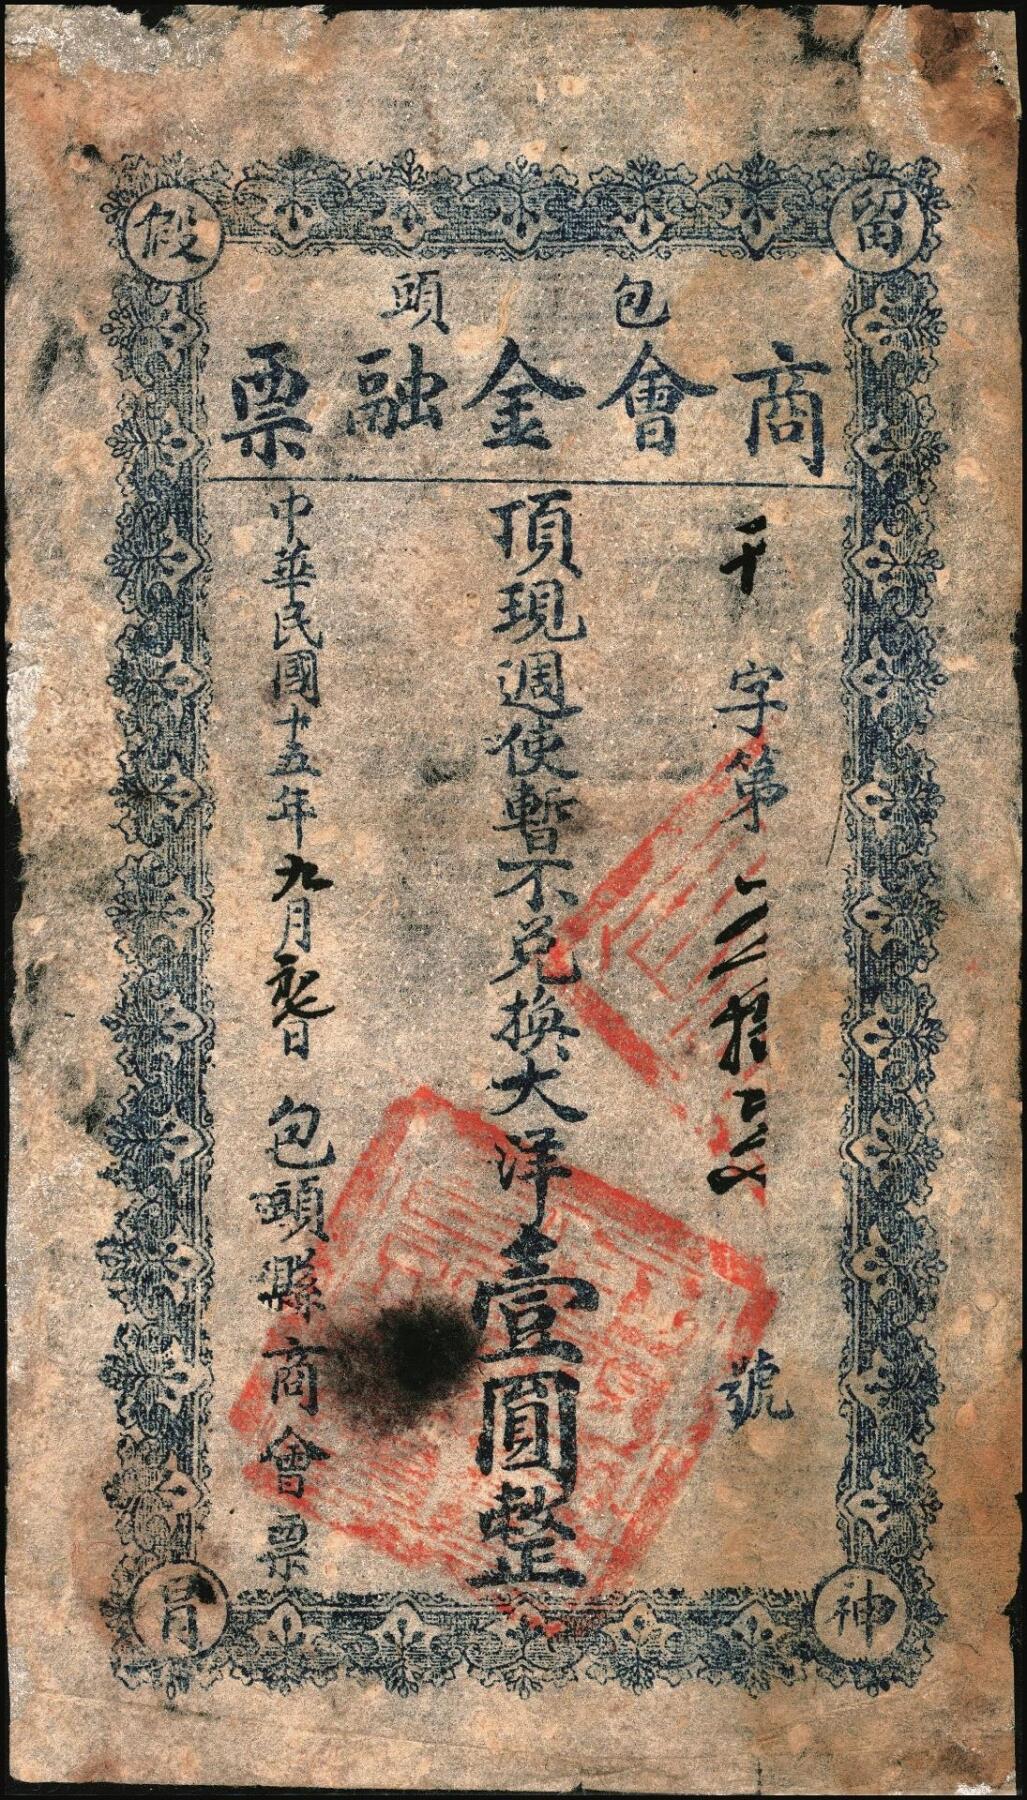 留神假冐
包頭
商會金融票
千字第 號
頂現週使暫不兑換大洋壹圓整
中華民國十五年九月 日 包頭縣商會票